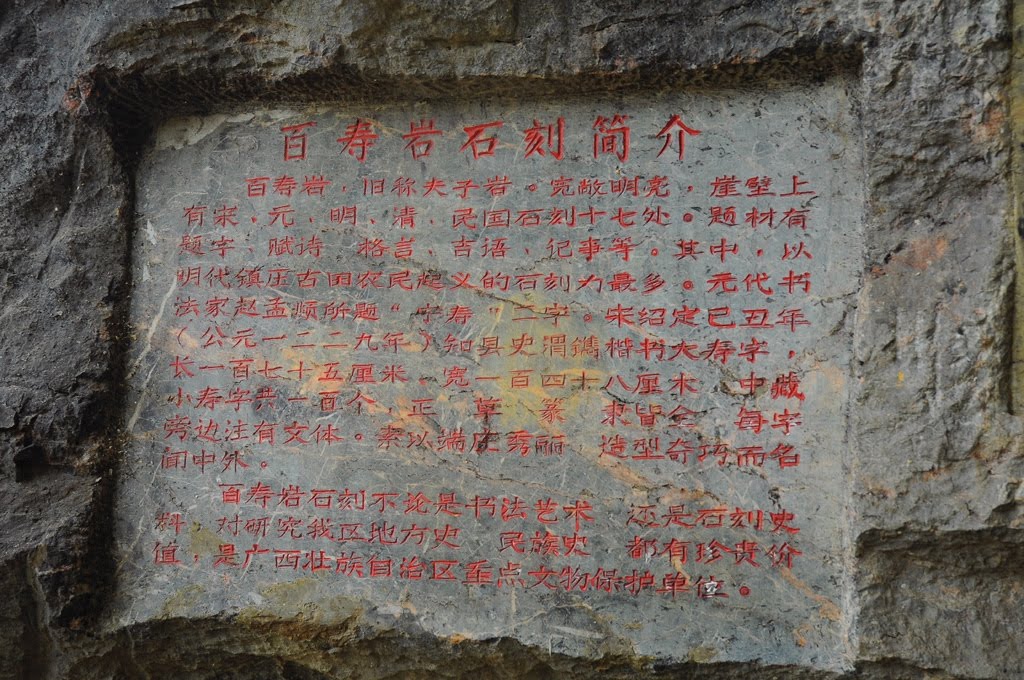 百寿岩石刻简介
百寿岩，旧称夫子岩。宽敞明亮，崖壁上
有宋、元、明、清、民国石刻十七处。题材有
题字、赋诗 格言、吉语、记事等。其中，以
明代镇庄古田农民起义的石刻为最多。元代书
法家赵孟頫所题“宁寿”二字。宋绍定己丑年
（公元一二二九年）知县史渭鐫楷书大寿字，
长一百七十五厘米，宽一百四十八厘米 中藏
小寿字共一百个，正 草 篆 隶皆全 每字
旁边注有文体。素以端庄秀丽，造型奇巧而名
闻中外。
百寿岩石刻不论是书法艺术 还是石刻史
料，对研究我区地方史 民族史 都有珍贵价
值，是广西壮族自治区重点文物保护单位。